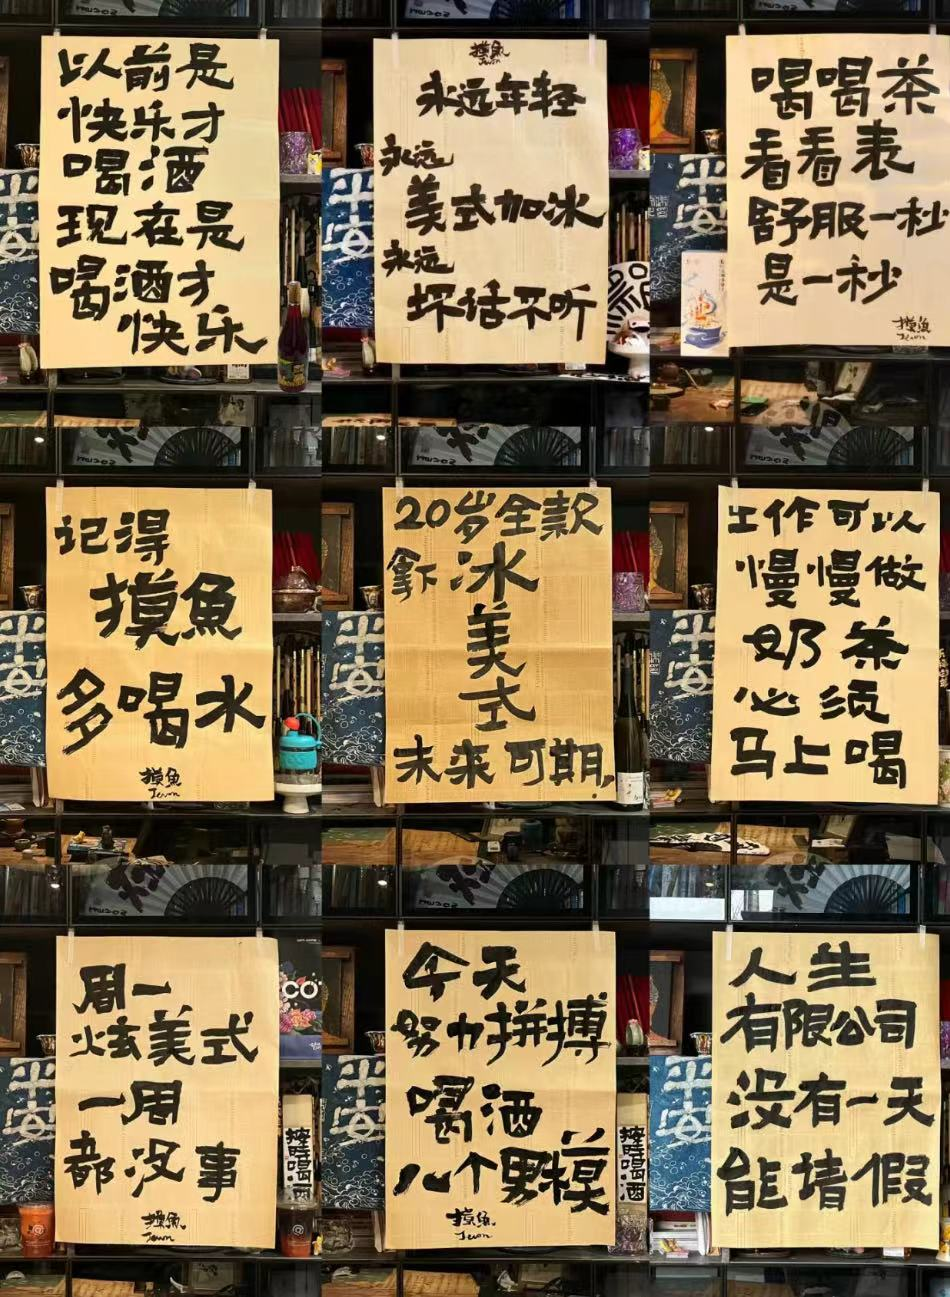 以前是
快乐才
喝酒
现在是
喝酒才
快乐
平安
摸魚
Jwon
永远年轻
永远
美式加冰
永远
坏话不听
平安
喝喝茶
看看表
舒服一秒
是一秒
摸魚
Jwon
记得
摸魚
多喝水
摸魚
Jwon
平安
20岁全款
拿下冰
美
式
未来可期,
平安
工作可以
慢慢做
奶茶
必须
马上喝
周一
炫美式
一周
都没事
摸魚
Jwon
平安
CO
按時喝酒
今天
努力拼搏
喝酒
八个男模
摸魚
Jwon
平安
按時喝酒
人生
有限公司
没有一天
能请假
平安